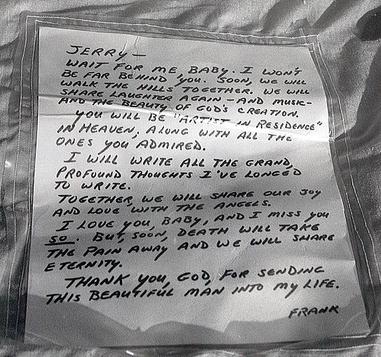 JERRY—
WAIT FOR ME, BABY. I WON'T
BE FAR BEHIND YOU. SOON, WE WILL
WALK THE HILLS TOGETHER. WE WILL
SHARE LAUGHTER AGAIN—AND MUSIC—
AND THE BEAUTY OF GOD'S CREATION.
YOU WILL BE "ARTIST IN RESIDENCE"
IN HEAVEN, ALONG WITH ALL THE
ONES YOU ADMIRED.
I WILL WRITE ALL THE GRAND,
PROFOUND THOUGHTS I'VE LONGED
TO WRITE.
TOGETHER, WE WILL SHARE OUR JOY
AND LOVE WITH THE ANGELS.
I LOVE YOU, BABY, AND I MISS YOU
SO. BUT, SOON, DEATH WILL TAKE
THE PAIN AWAY AND WE WILL SHARE
ETERNITY.
THANK YOU, GOD, FOR SENDING
THIS BEAUTIFUL MAN INTO MY LIFE.
FRANK